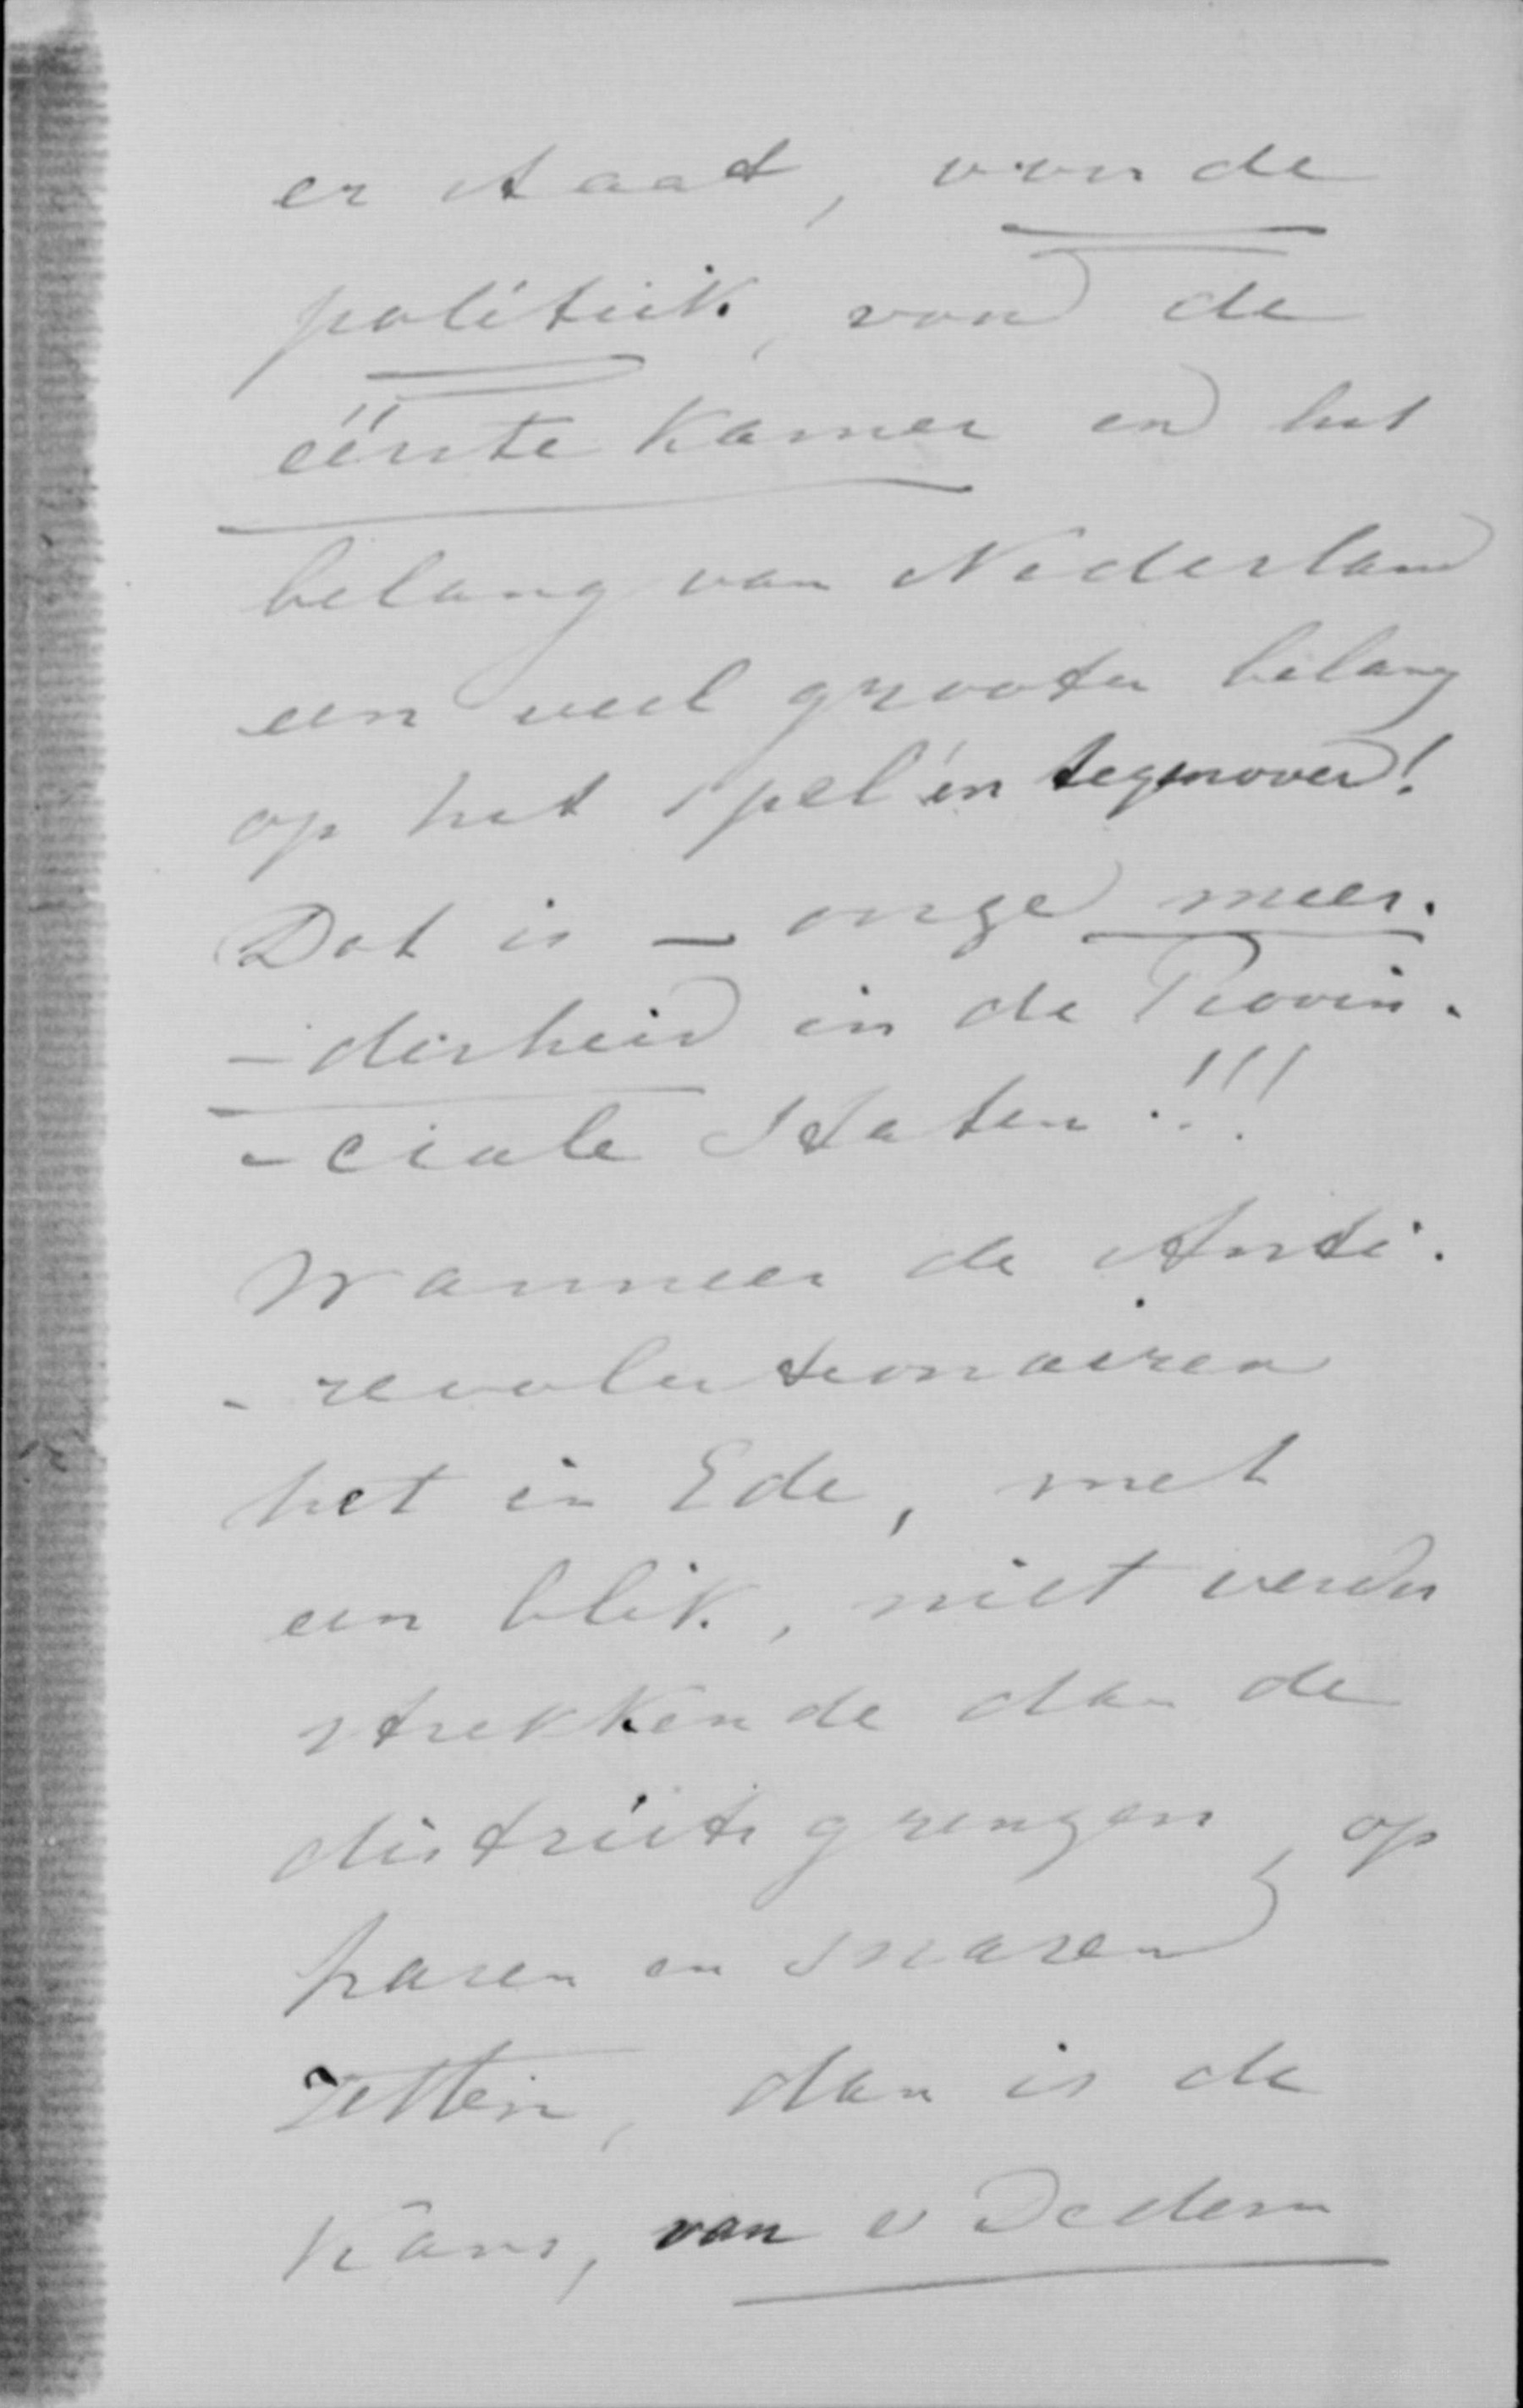 er staat, von de
politiek, von de
eërste Kamer en het
belang van Nederland
een veel grooter belang
op het spel én tegenover!
Dat is – onze meer-
-derheid in de Provin-
-ciale Staten!!!
Wanneer de Anti-
-revolutionairen
het in Ede, met
een blik, niet verder
strekkende dan de
districtsgrenzen, op
haren en snaren
zetten, dan is de
kans, van v Dedem